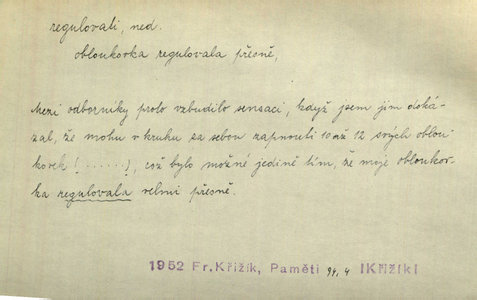 regulovati, ned.
obloukovka regulovala přesně,
Mezi odborníky proto vzbudilo sensaci, když jsem jim doká-
zal, že mohu v kruhu za sebou zapnouti 10 až 12 svých oblou-
kovek (......), což bylo možné jedině tím, že moje obloukov-
ka regulovala velmi přesně.
1952 Fr. Křižík, Paměti 94, 4 |Křižík|